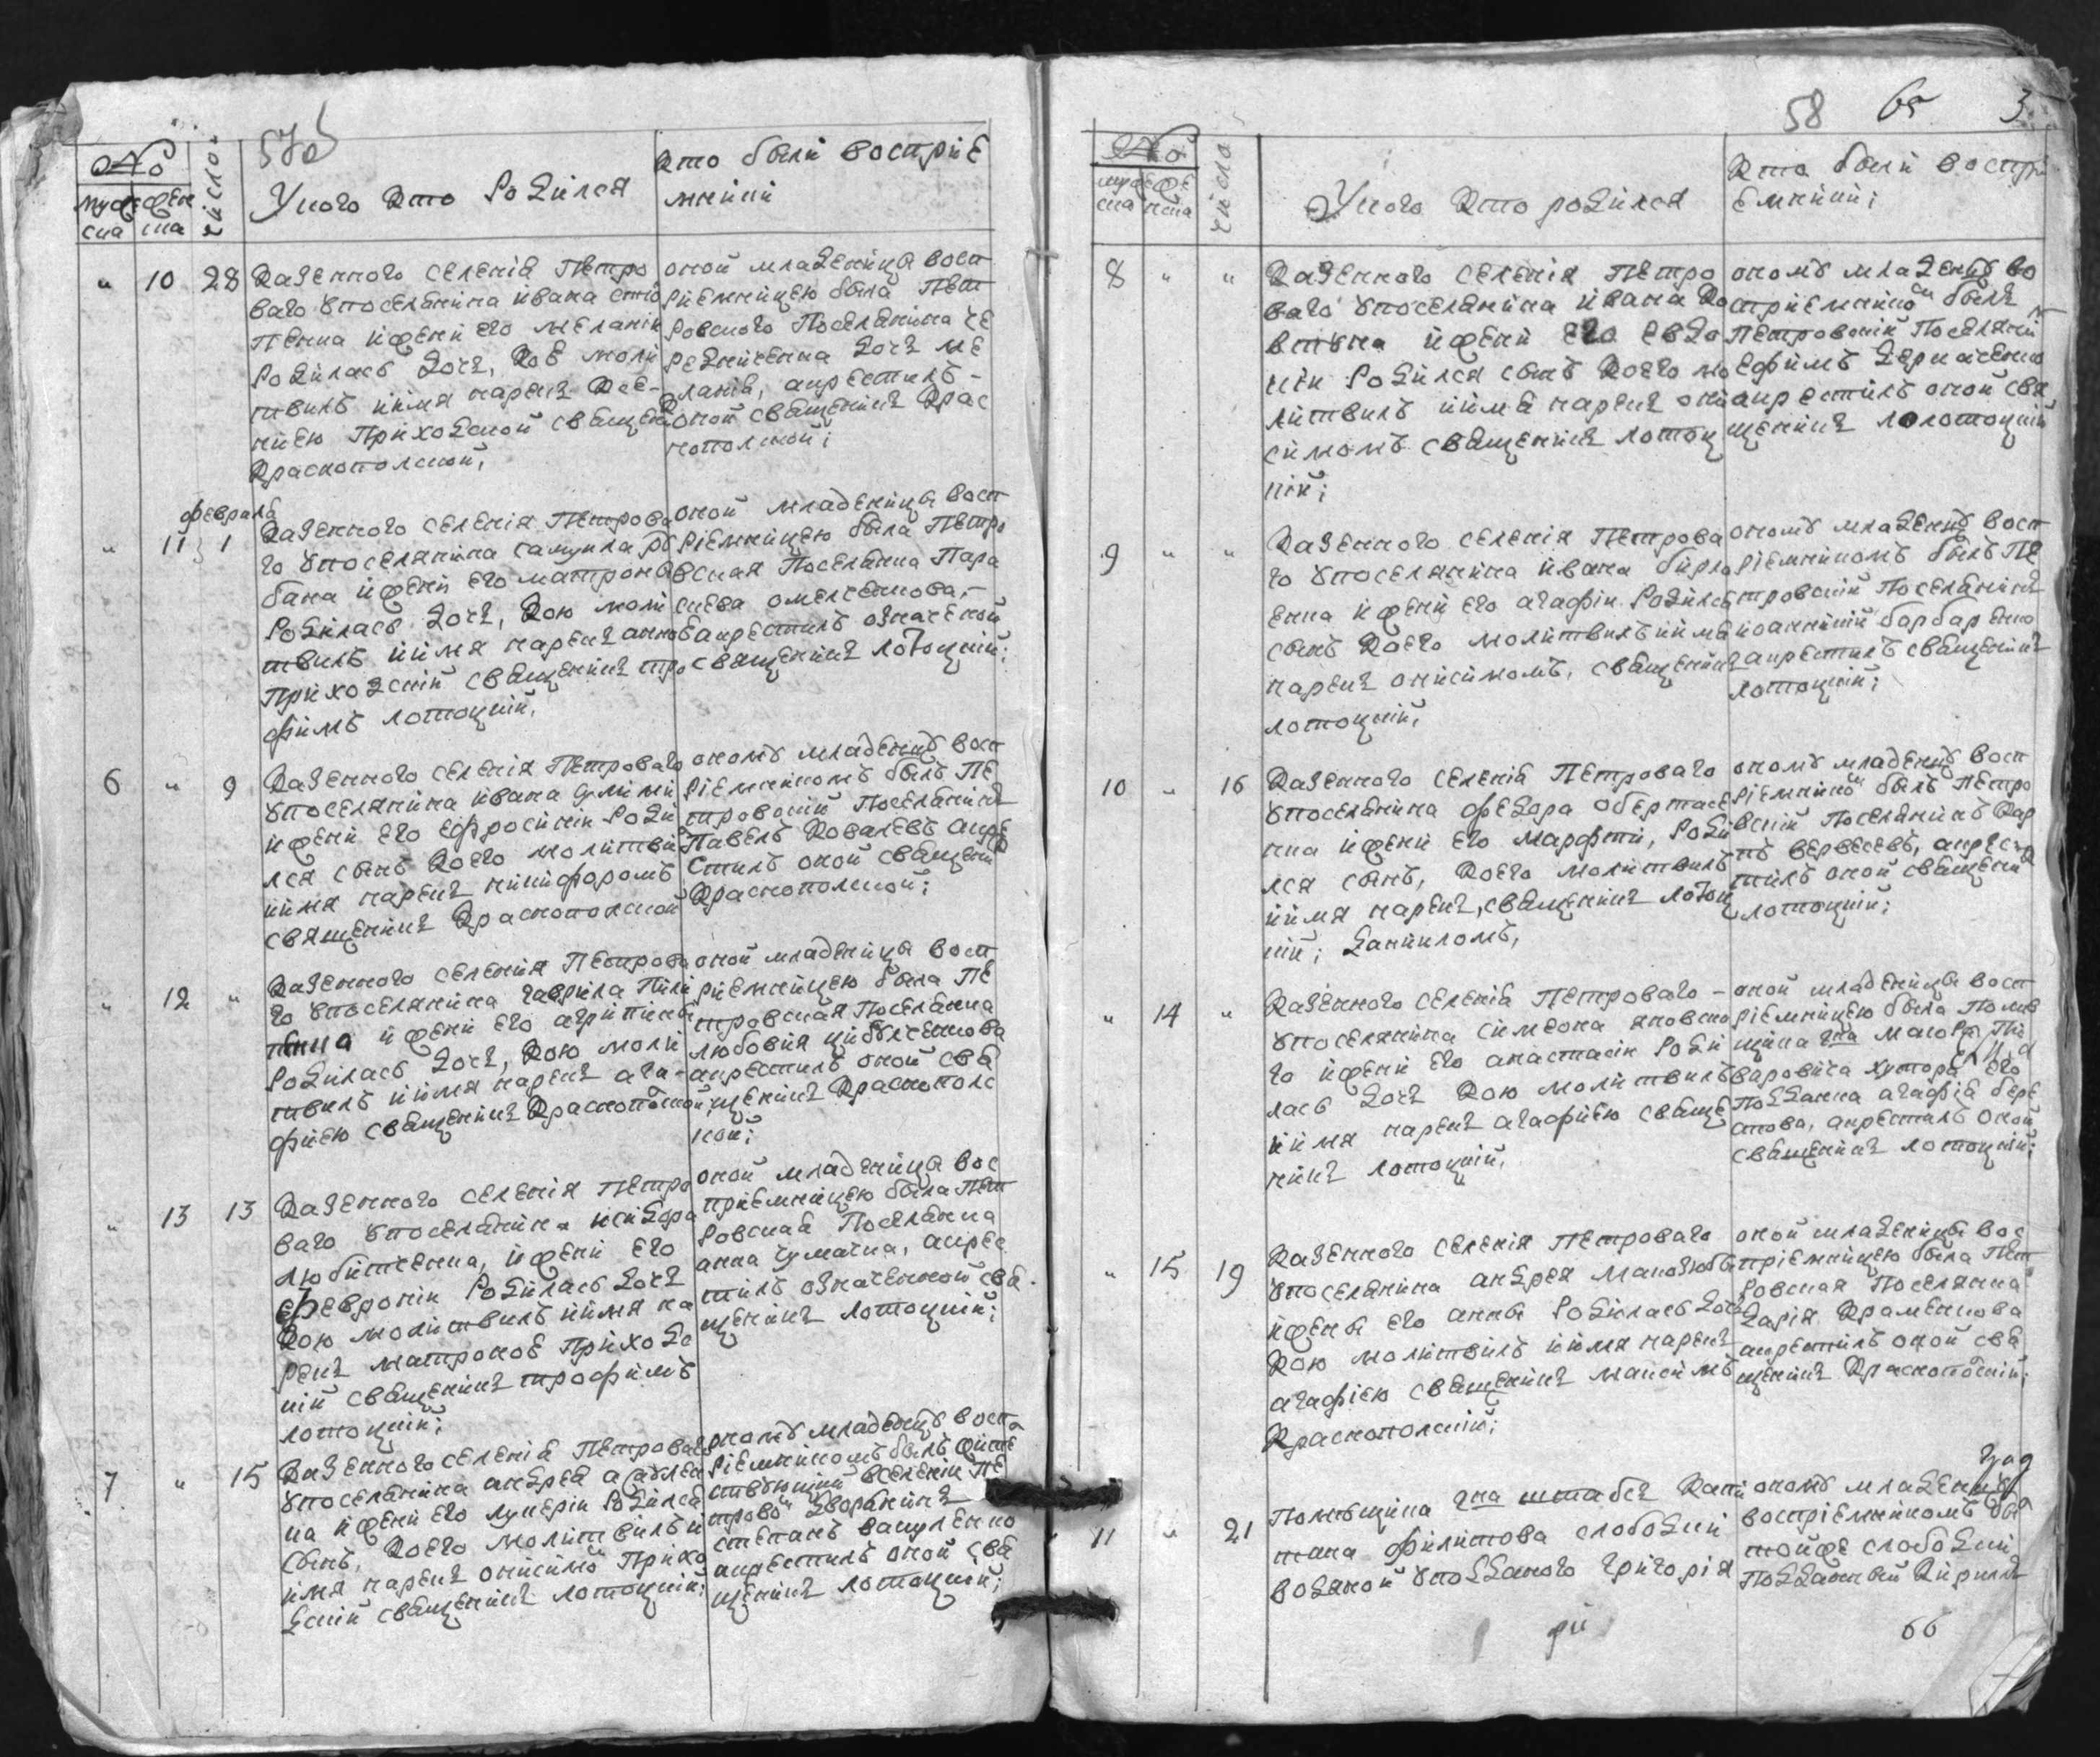 №
мужеска
женска
число
У кого кто родился
кто были восприе
мники
10 28
казенного селенія Петро
ваго упоселянина ивана сти
пенка ижени его меланіи
родилась дочь, кое моли
твилъ иимя нареч ксе-
ніею Приходской священи
Краснополской,
оной младеници восп
ріемницею была Пет
ровского Поселянина че
редниченка дочь ме
ланія, акрестилъ -
оной священикъ крас
нополской;
февраля
11 1
казенного селенія Петрова
го упоселянина самуила
бана ижени его матроны
родилась дочь, кою моли
твилъ иимя нареч анно
Приходскій священикъ тро
фимъ лотоцкій,
оной младеници восп
ріемницею была Петро
вская Поселянка Пара
скева омелченкова,-
акрестилъ означеной
священикъ лотоцкій;
6 9
казенного селенія Петроваго
упоселянина ивана
ижени его ефросиніи роди
лся сынъ коего молитви
иимя нареч никифоромъ
священикъ Краснополской
ономъ младенцѣ восп
ріемникомъ былъ Пе
тровскій Поселянинъ
Павелъ Ковалевъ акре
стилъ оной священи
Краснополской;
12
казенного селенія Петрова
го упоселянина гаврила
ижени его агрипины
родилась дочь, кою моли
твилъ иимя нареч ага-
фиею священикъ Краснополской
оной младеници восп
риемницею была Пе
тровская Поселянка
любовія
акрестилъ оной свя
щеникъ Краснополс
кой;
13 13
казенного селенія Петро
ваго упоселянина исидора
любитченка, ижени его
февроніи родилась дочь
кою молитвилъ иимя на
реч матроное Приходс
кій священикъ трофимъ
лотоцкій;
оной младеници вос
пріемницею была Пет
ровская Поселянка
анна чумачка, акрес
тилъ означенной свя
щеникъ лотоцкій;
7 15
казенного селенія Петроваго
упоселянина андрея
ка ижени его лукеріи родился
сынъ, коего молитвилъ и
имя нареч онисимо Прихо
дскій священикъ лотоцкій;
ономъ младенцѣ восп
ріемникомъ былъ жите
лствующій вселеніи Пе
трово дворянинъ
степанъ вакуленко
акрестилъ оной свя
щеникъ лотоцкій;
58 65 3
№
мужеска
женска
число
У кого кто родился
кто были воспри
емники;
8
казенного селенія Петро
ваго упоселянина ивана ко
втуна ижени его евдо
кіи родился сынъ коего мо
литвилъ иимя нареч они
симомъ священикъ лотоц
кій;
ономъ младенцѣ во
сприемнико былъ
Петровскій Поселяни
ефимъ
акрестилъ оной свя
щеникъ лотоцкій
9
казенного селенія Петрова
го упоселянина ивана бирла
енка ижени его агафіи родился
сынъ коего молитвилъ иимя
нареч онисимомъ, священикъ
лотоцкій,
ономъ младенцѣ восп
ріемникомъ былъ Пе
тровскій Поселянинъ
иоанникій барбаренко
акрестилъ священикъ
лотоцкій;
10 16
казенного селенія Петроваго
упоселянина федора обертасе
нка ижени его марфти, роди
лся сынъ, коего молитвилъ
иимя нареч, священикъ лотоц
кій; даниломъ,
ономъ младенцѣ восп
ріемнико былъ Петро
вскій Поселянинъ кар
пъ акрес
тилъ оной священи
лотоцкій;
14
казенного селенія Петроваго -
упоселянина симеона яковенко
го ижени его анастасіи роди
лась дочь кою молитвилъ
иимя нареч агафиею священ
никъ лотоцкій,
оной младеници восп
ріемницею была Помѣ
щика гна
варовича хутора его
Подданка агафія
акрестилъ оной
священикъ лотоцкій;
15 19
казенного селенія Петроваго
упоселянина андрея
ижены его анны родилась дочь
кою молитвилъ иимя нареч
агафіею священикъ максимъ
Краснополскій;
оной младеници вос
пріемницею была Пет
ровская Поселянка
дарія Храменкова
акрестилъ оной свя
щеникъ Краснополскій;
11 21
Помѣщика гна штабсъ капи
тана филитова слободки
водяной уподданого григорія
ономъ младенцѣ
воспріемникомъ бы
тойже слободки
Подданный Кирилъ
66